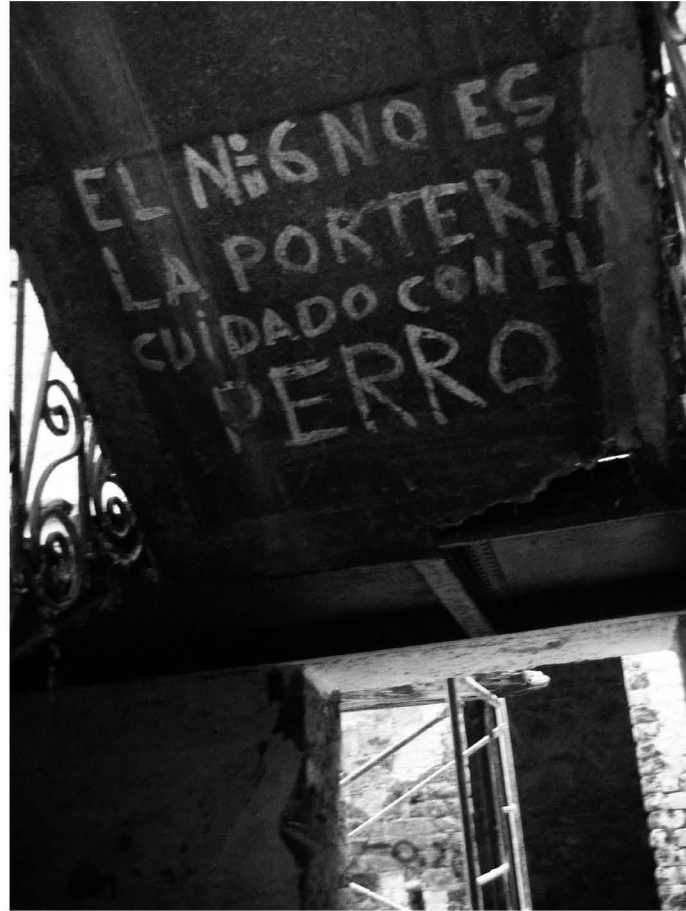 EL NiGNO ES
LA PORTERiA
CUiDADO CON EL
PERRO